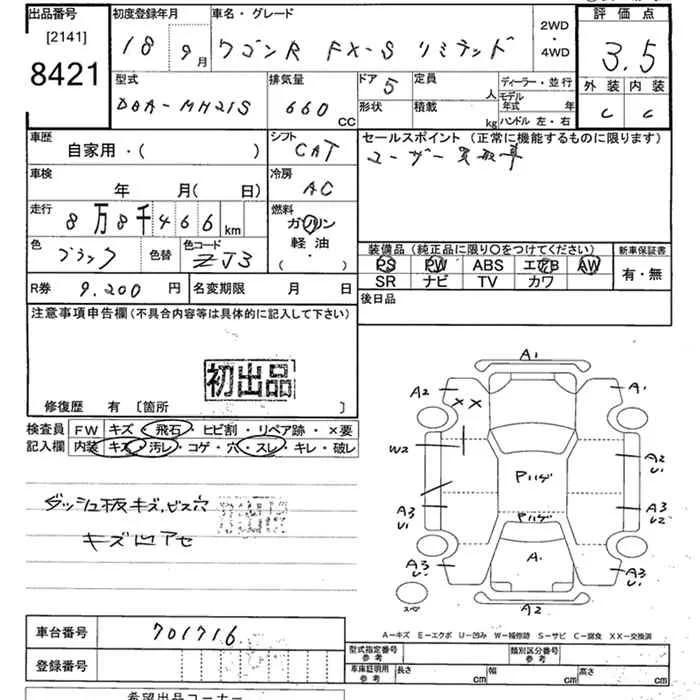 出品番号 初度登録年月 車名・グレード 評価点
[2141] 8421 18 9月 ワゴンR FX-S リミテッド 2WD・4WD 3.5
型式 排気量 ドア 定員 ディーラー・並行 外装 内装
DBA-MH21S 660 CC 5 人 モデル年式 年 C C
形状 積載 kg ハンドル 左・右
車歴 シフト セールスポイント (正常に機能するものに限ります)
自家用・( ) CAT ユーザー買取車
車検 冷房
年 月( 日) AC
走行 燃料
8万8千466km ガソリン
軽油
( ・ )
色 色替 色コード
ブラック ZJ3
装備品 (純正品に限り○をつけてください) 新車保証書
PS PW ABS エアB AW 有・無
SR ナビ TV カワ
R券 9,200円 名変期限 月 日 後日品
注意事項申告欄 (不具合内容等は具体的に記入して下さい)
初出品
修復歴 有 〔箇所 〕
検査員記入欄 FW キズ・飛石・ヒビ割・リペア跡・×要
内装 キズ・汚レ・コゲ・穴・スレ・キレ・破レ
ダッシュ板キズ、ビス穴
キズ凹アセ
A1
A2 XX A1
W2 A2 U1
Pハゲ
A3 U1 Pハゲ A3 U2
A3 U1 A A3 U1
スペア A2
A-キズ E-エクボ U-凹み W-補修跡 S-サビ C-腐食 XX-交換済
車台番号 701716
登録番号
型式指定番号 参考 類別区分番号 参考
車庫証明用 参考 長さ cm 幅 cm 高さ cm
希望出品コーナー